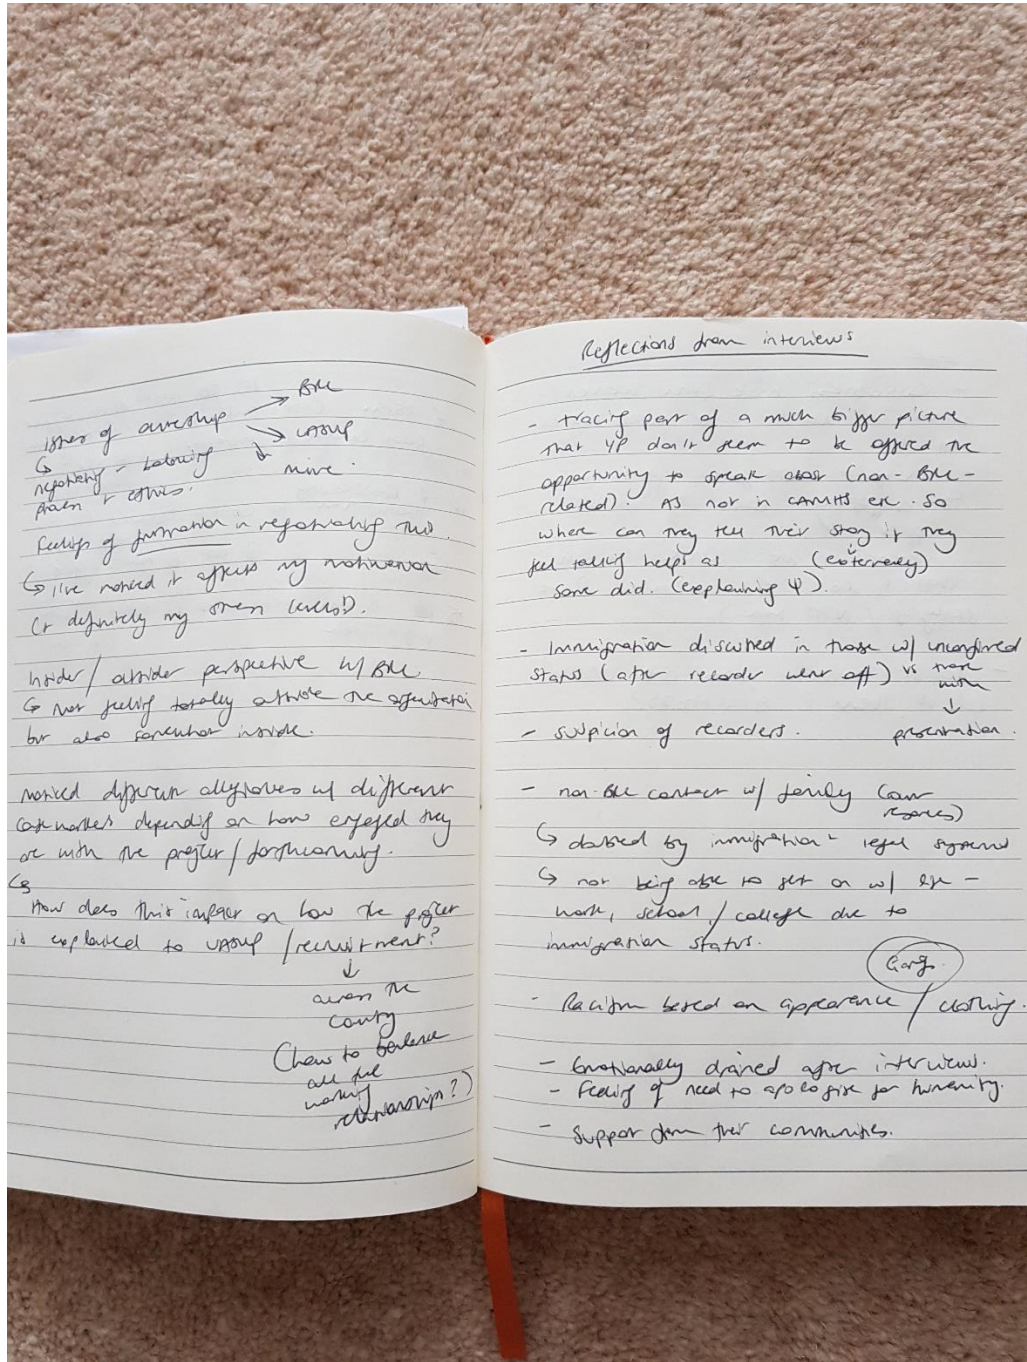 Issues of ownership → BRC
↳ → UASYP
negotiating - balancing ↓ mine.
power & ethics.
Feelings of frustration in negotiating this.
↳ I've noticed it affects my motivation
(& definitely my stress levels!).
Insider/outsider perspective w/ BRC
↳ Not feeling totally outside the organisation
but also somewhat inside.
Noticed different allegiances w/ different
caseworkers depending on how engaged they
are with the project/forthcoming.
↳
How does this impact on how the project
is explained to UASYP/recruitment?
↓
across the
country
(how to balance
all the
working
relationships?)
Reflections from interviews
- Tracing part of a much bigger picture
that YP don't seem to be offered the
opportunity to speak about (non-BRC-
related). As not in CAMHS etc. So
where can they tell their story if they
feel talking helps as (externally)
some did. (explaining Ψ).
- Immigration discussed in those w/ unconfirmed
status (after recorder went off) vs those
with
↓
- suspicion of recorders. presentation.
- non-BRC contact w/ family (own
resources)
↳ by immigration legal systems
↳ not being able to get on w/ life -
work, school/college due to
immigration status.
- Racism based on appearance / clothing.
- Emotionally drained after interviews.
- Feeling of need to apologise for humanity.
- Support from their communities.